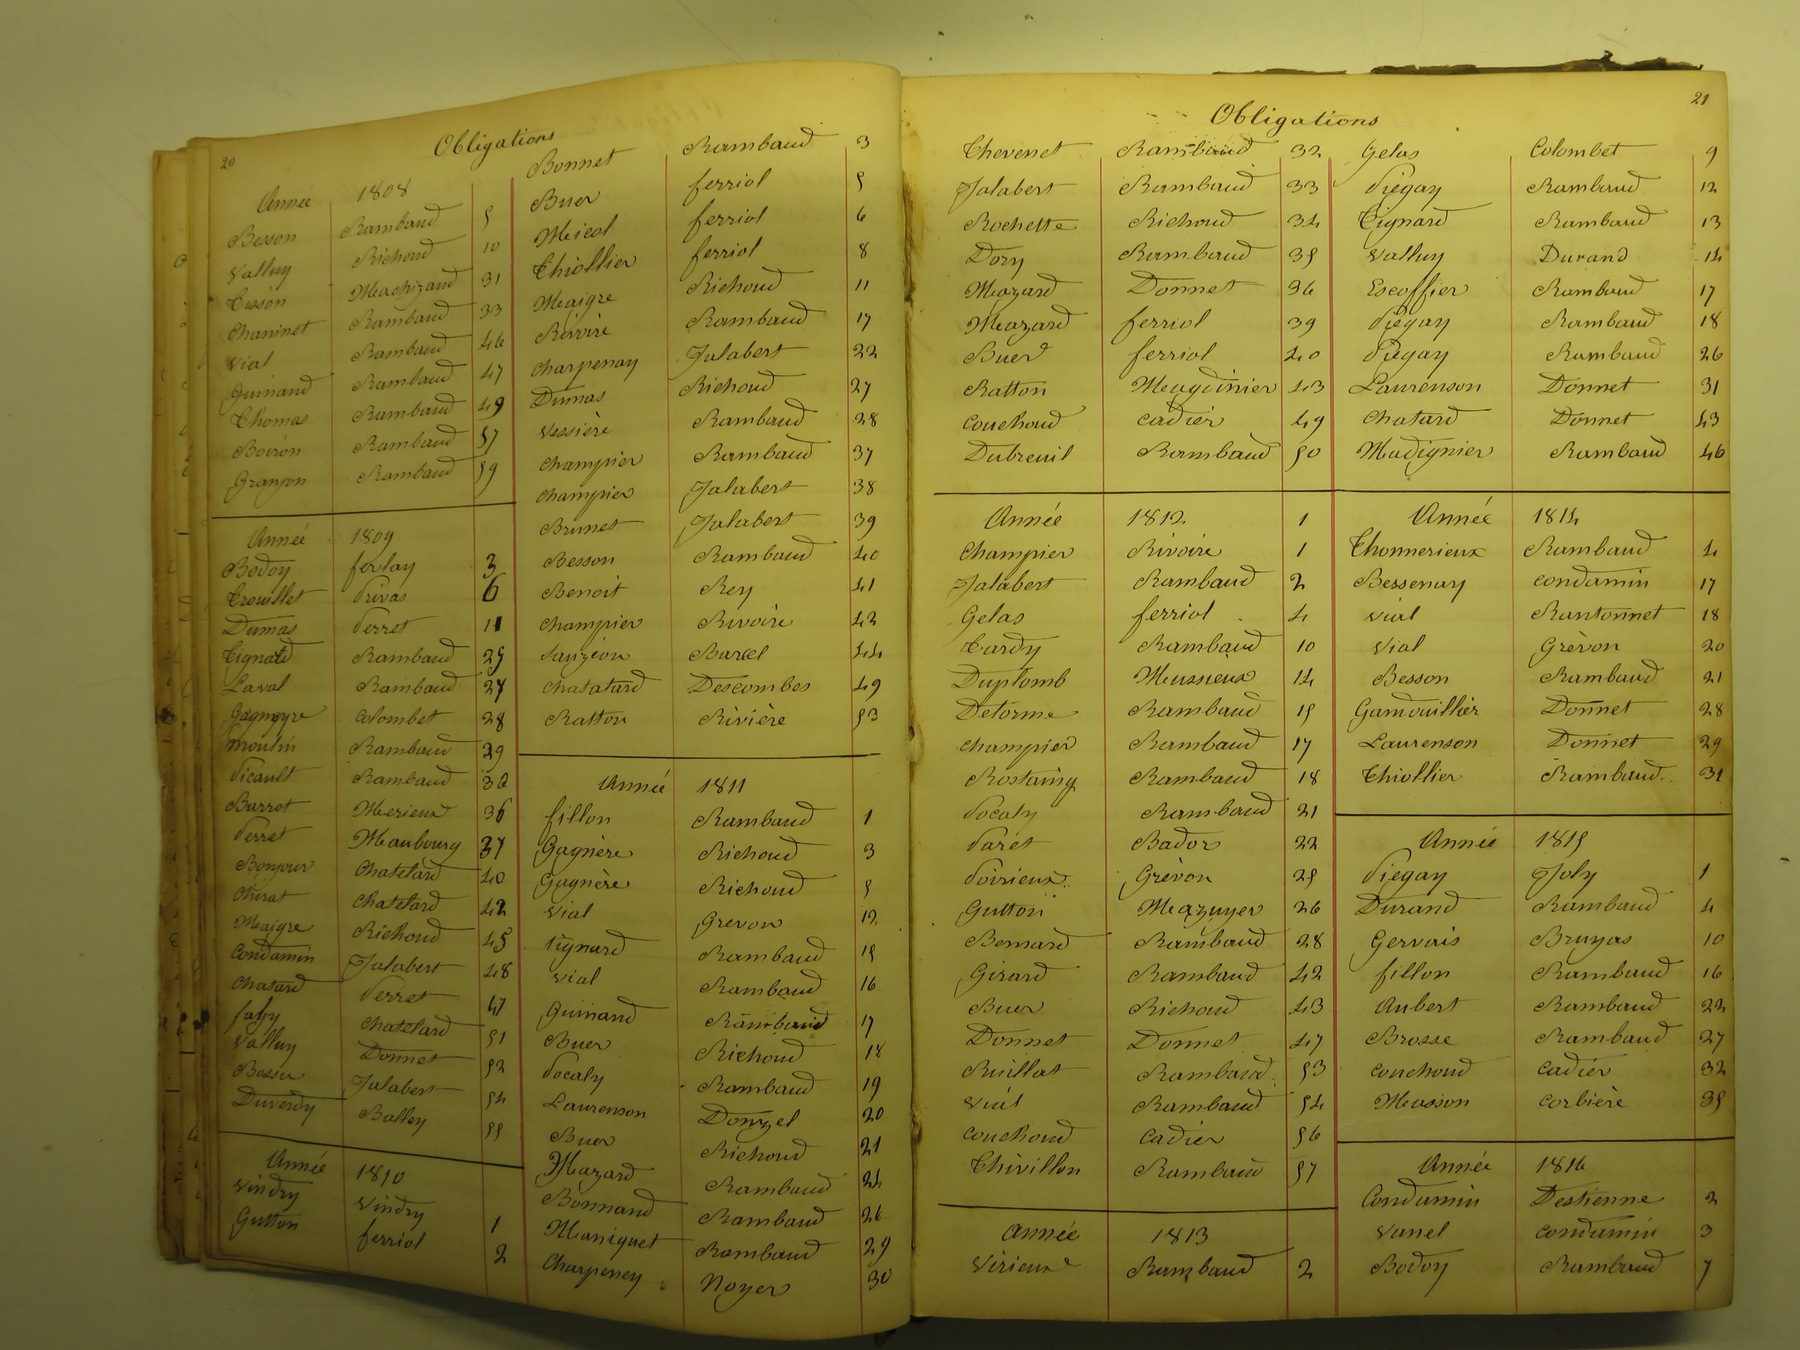 20
Obligations
Année 1808
Besson Rambaud 5
Valluy Richoud 10
Tisson Machizaud 31
Chaninet Rambaud 33
Vial Rambaud 46
Guinand Rambaud 47
Thomas Rambaud 49
Boiron Rambaud 57
Granjon Rambaud 59
Année 1809
Bodoy ferlay 3
Trouillet Privas 6
Dumas Perret 11
Tignard Rambaud 25
Laval Rambaud 27
Gagneyre Colombet 28
Moulin Rambaud 29
Picault Rambaud 32
Burrot Merieux 36
Perret Maubourg 37
Bonjour Chatelard 40
Chirat Chatelard 42
Maigre Richoud 45
Condamin Jalabert 48
Chatard Perret 47
fahy Chatelard 51
Valluy Donnet 52
Besson Jalabert 54
Duverdy Balley 55
Année 1810
Vindry Vindry 1
Gutton ferriol 2
Bonnet Rambaud 3
Buer ferriol 5
Micol ferriol 6
Thiollier ferriol 8
Maigre Richoud 11
Rivire Rambaud 17
Charpenay Jalabert 22
Dumas Richoud 27
Vessière Rambaud 28
Champier Rambaud 37
Champier Jalabert 38
Brunet Jalabert 39
Besson Rambaud 40
Benoit Rey 41
Champier Rivoire 42
Sauzion Barcel 44
Chatatard Descombes 49
Ratton Rivière 53
Année 1811
fillon Rambaud 1
Gagnère Richoud 3
Gagnère Richoud 5
Vial Grevon 12
Tignard Rambaud 15
Vial Rambaud 16
Guinand Rambaud 17
Buer Richoud 18
Pocaly Rambaud 19
Laurenson Donzel 20
Buer Richoud 21
Mazard Rambaud 24
Bonnand Rambaud 26
Maniquet Rambaud 29
Charpeney Noyer 30
21
Obligations
Chevenet Rambaud 32
Jalabert Rambaud 33
Rochette Richoud 34
Dory Rambaud 35
Mazard Donnet 36
Mazard ferriol 39
Buer ferriol 40
Ratton Magdinier 43
Couchoud Cadier 49
Dubreuil Rambaud 50
Année 1812 1
Champier Rivoire 1
Jalabert Rambaud 2
Gelas ferriol 4
Tardy Rambaud 10
Duplomb Mussieux 14
Delorme Rambaud 15
Champier Rambaud 17
Rostaing Rambaud 18
Pocaly Rambaud 21
Paret Bador 22
Poirieux Grèvon 25
Gutton Mazuyer 26
Bernard Rambaud 28
Girard Rambaud 42
Buer Richoud 43
Donnet Donnet 47
Ruillat Rambaud 53
Vial Rambaud 54
Couchoud Cadier 56
Thivillon Rambaud 57
Année 1813
Virieux Rambaud 2
Gelas Colombet 9
Piegay Rambaud 12
Tignard Rambaud 13
Valluy Durand 14
Escoffier Rambaud 17
Piegay Rambaud 18
Piegay Rambaud 26
Laurenson Donnet 31
Chatard Donnet 43
Madignier Rambaud 46
Année 1814
Thonnerieux Rambaud 4
Bessenay Condamin 17
Vial Rantonnet 18
Vial Grèvon 20
Besson Rambaud 21
Gamouillier Donnet 28
Laurenson Donnet 29
Thiollier Rambaud 31
Année 1815
Piegay Joly 1
Durand Rambaud 4
Gervais Bruyas 10
fillon Rambaud 16
Aubert Rambaud 22
Brosse Rambaud 27
Couchoud Cadier 32
Masson Corbière 35
Année 1816
Condamin Destienne 2
Vanel Condamin 3
Bodoy Rambaud 7